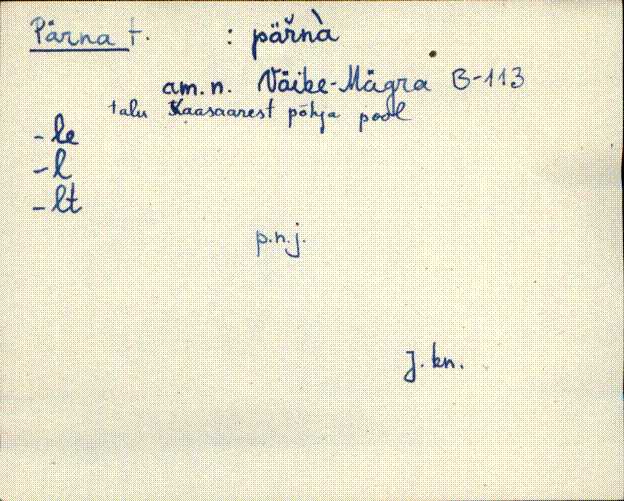 Pärna t. : päřnà
am. n. Väike-Mägra B-113
talu Kaasaarest põhja pool
-le
-l
-lt
p.n.j.
J. kn.